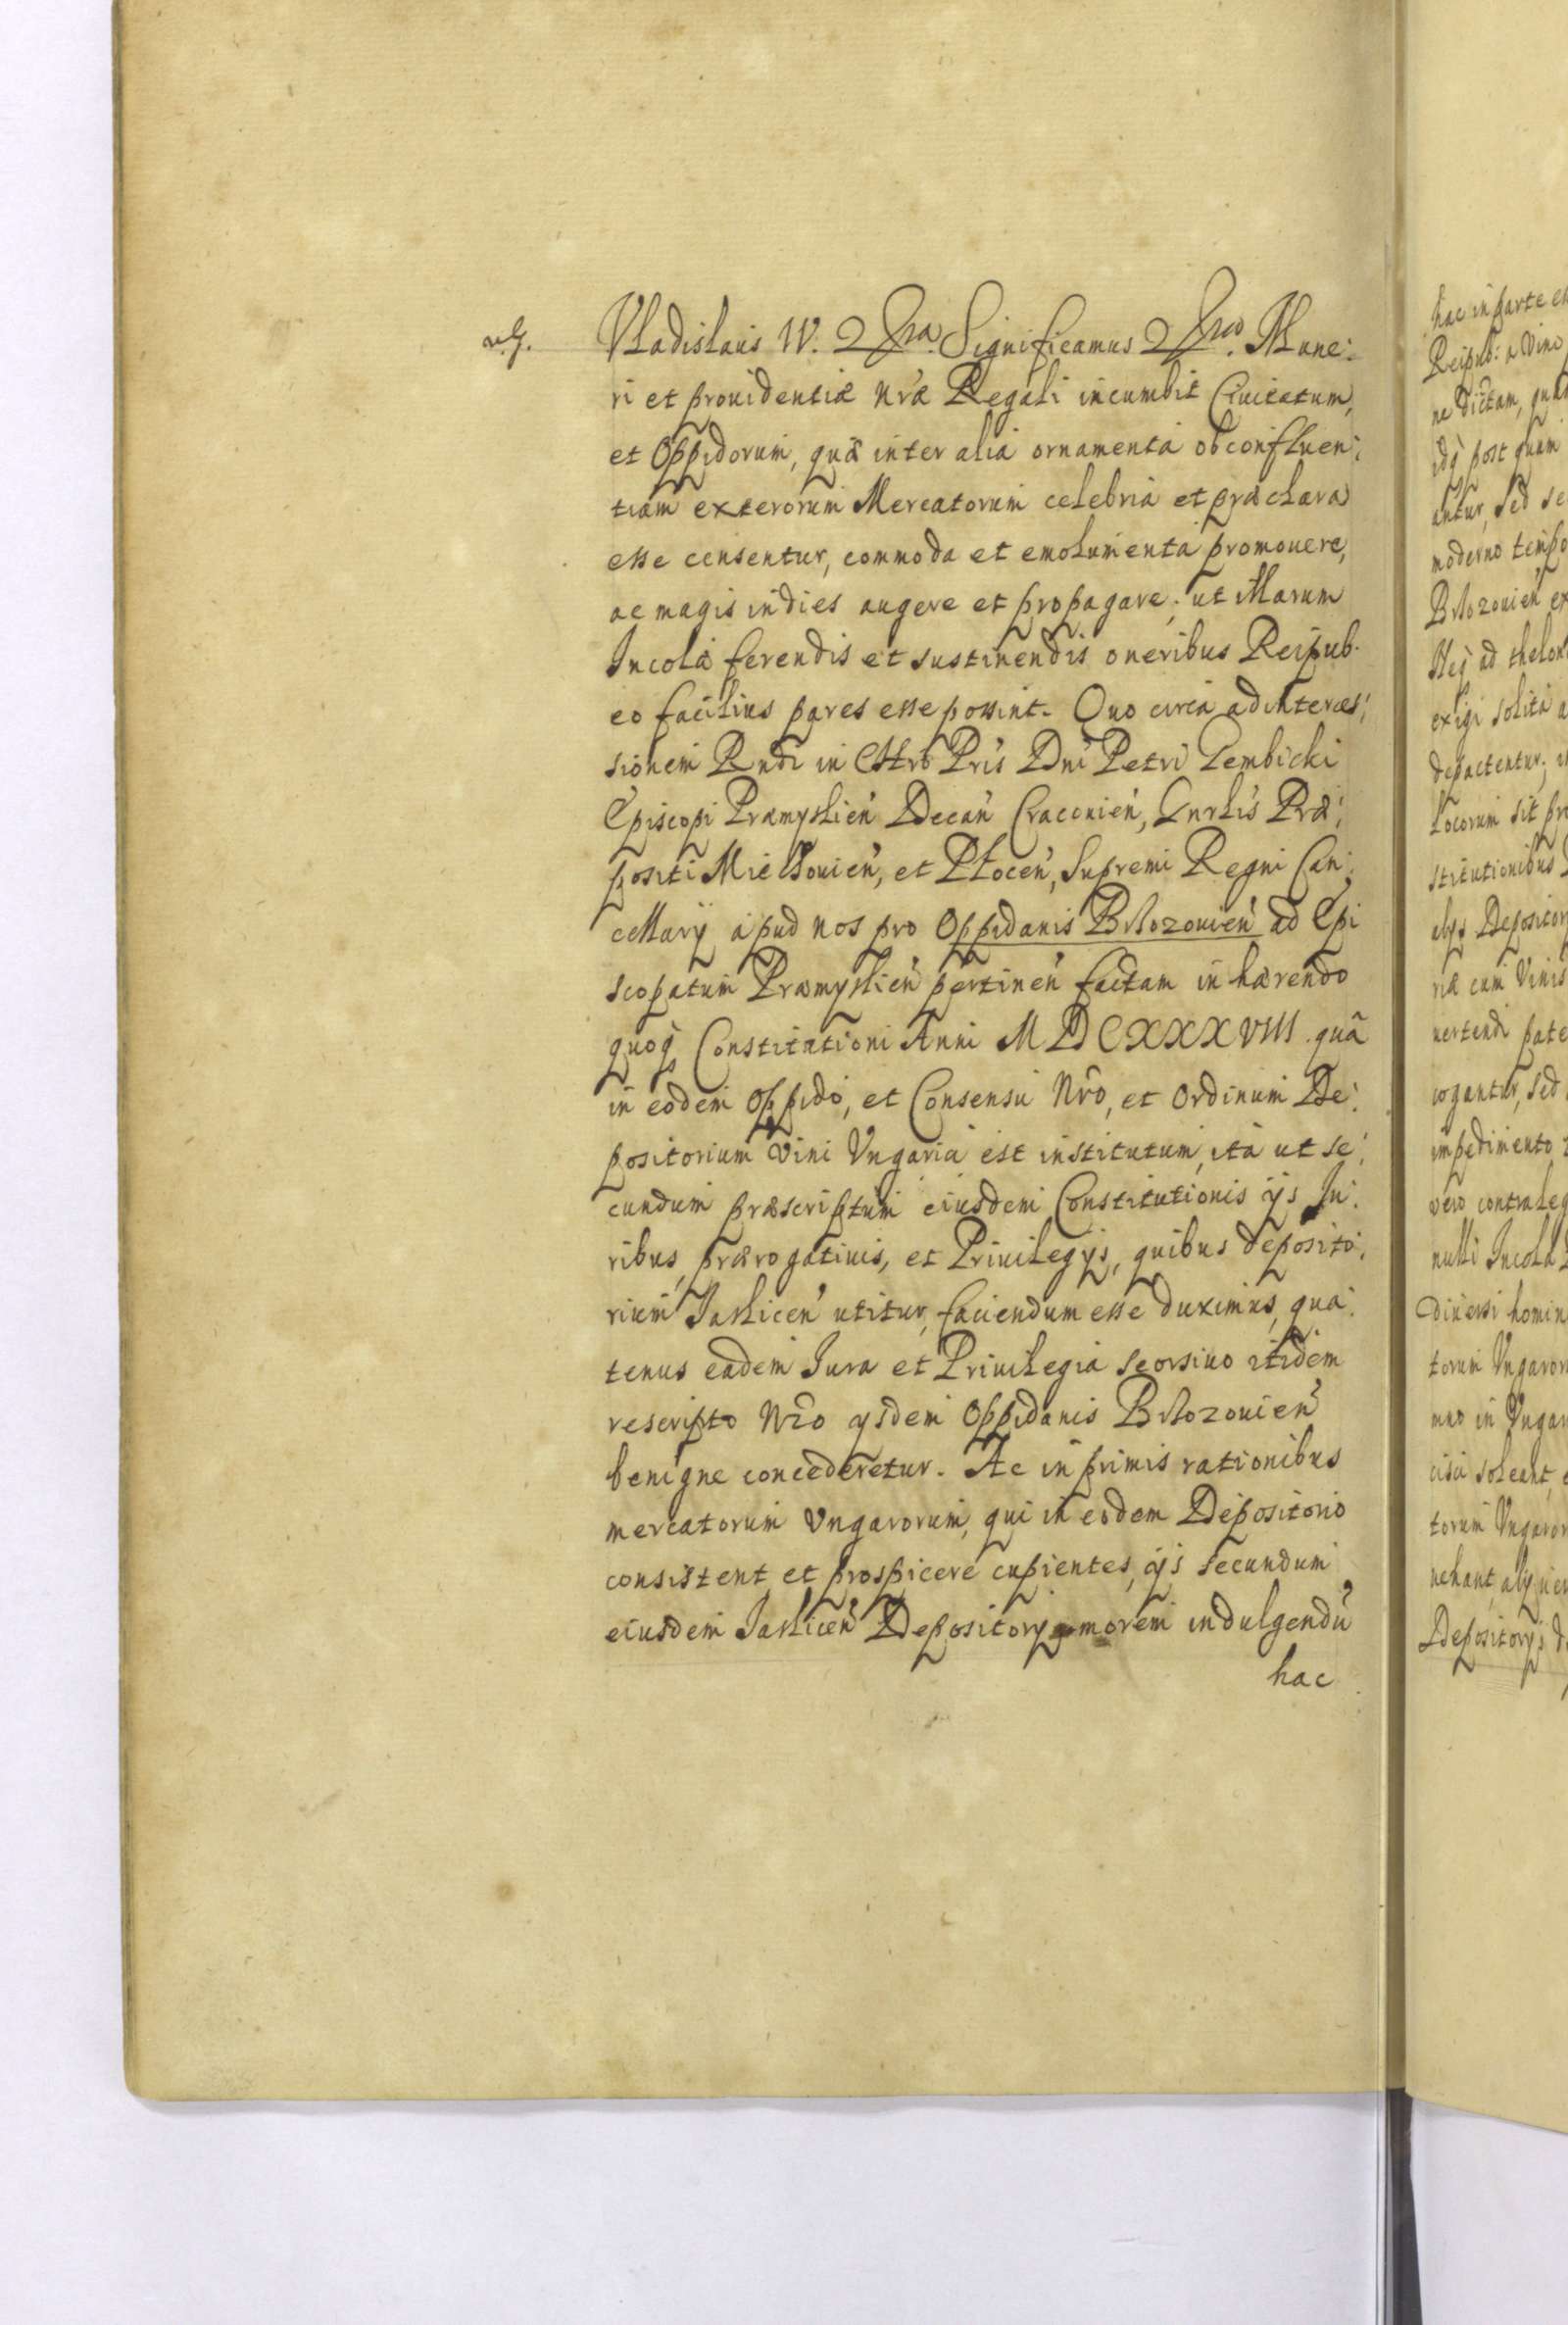 Vladislaus IV. Significamus Mune:
ri et prouidentiæ nræ Regali incumbit Ciuitatum,
et Oppidorum, quæ inter alia ornamenta ob confluen:
tiam exterorum Mercatorum celebria et præclara
esse censentur, commoda et emolumenta promouere,
ac magis indies augere et propagare; ut illarum
Incolæ ferendis et sustinendis oneribus Reipub.
eo facilius pares esse possint. Quo circa ad interces:
sionem Rndi in Chro Pris Dni Petri Gembicki
Episcopi Præmyslien Decan Cracouien, Gnrlis Præ:
positi Miechouien, et Plocen, Supremi Regni Can:
cellarij apud nos pro Oppidanis Brzozouien ad Epi
scopatum Præmyslien pertinen factam in hærendo
quoq Constitutioni Anni MDCXXXVIII. quâ
in eodem oppido, et Consensu Nro, et Ordinum De:
positorium Vini Vngaria est institutum, ita ut se:
cundum præscriptum eiusdem Constitutionis ijs Iu:
ribus, prærogatiuis, et Priuilegijs, quibus deposito:
rium Jaslicen utitur, faciendum esse duximus, qua:
tenus eadem Iura et Priuilegia seorsiuo itidem
rescripto Nro ijsdem Oppidanis Brzozouien
benigne concederetur. Ac in primis rationibus
mercatorum Vngarorum, qui in eodem Depositorio
consistent et prospicere cupientes, ijs secundum
eiusdem Jaslicen Depositorij morem indulgendũ
hac
hac in parte
Reipub: a Vino
ne dictam,
idq post quam
antur, sed se
moderno tempo
Brzozouien ex
Neq ad
exigi solita a
depactentur;
Locorum sit
stitutionibus
Depositor
riæ cum Vinis
uertendi pate
cogantur, sed
impedimento
vero contraleg
nulli Incolæ
diuersi homin
torum Vngaror
in Vngar
soleant,
torum Vngaror
uehant, alij
Depositorijs